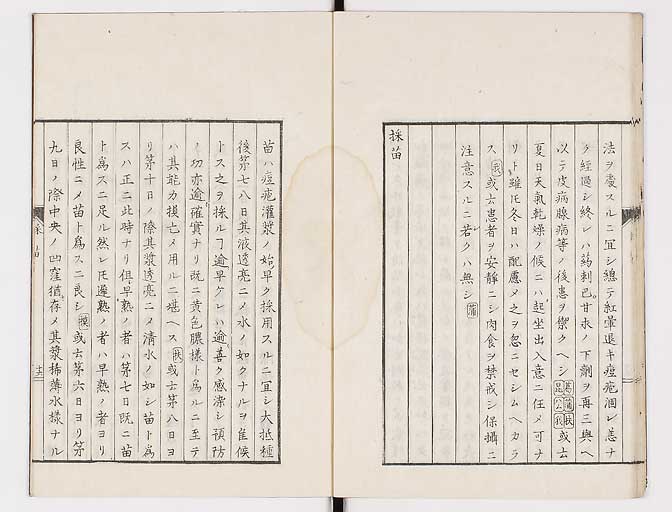 法ヲ處スルニ宜シ總テ紅暈退キ痘痂涸レ恙ナ
ク經過シ終レハ葯剌巴甘汞ノ下劑ヲ再三與ヘ
以テ皮病腺病等ノ後患ヲ禦クヘシ 葛 蒲 扶 昆 公 我 或云
夏日天氣乾燥ノ候ニハ起坐出入意ニ任メ可ナ
リト雖𪜈冬日ハ配慮メ之ヲ忽ニセシムヘカラ
ス 我 或云患者ヲ安靜ニシ肉食ヲ禁戒シ保攝ニ
注意スルニ若クハ無シ 蒲
採苗
苗ハ痘疱灌漿ノ始早ク採用スルニ宜シ大抵種
後第七八日其液透亮ニメ水ノ如クナルヲ佳候
トス之ヲ採ルヿ逾早ケレハ逾善ク感染シ預防
ノ功亦逾確實ナリ既ニ黄色膿様ト為ルニ至テ
ハ其能力損亡メ用ルニ堪ヘス 扶 或云第八日ヨ
リ第十日ノ際其漿透亮ニメ清水ノ如シ苗ト為
スハ正ニ此時ナリ但早熟ノ者ハ第七日既ニ苗
ト為スニ足ル然レ𪜈遲熟ノ者ハ早熟ノ者ヨリ
良性ニメ苗ト為スニ良シ 模 或云第六日ヨリ第
九日ノ際中央ノ凹窪猶存メ其漿稀薄水様ナル
採苗